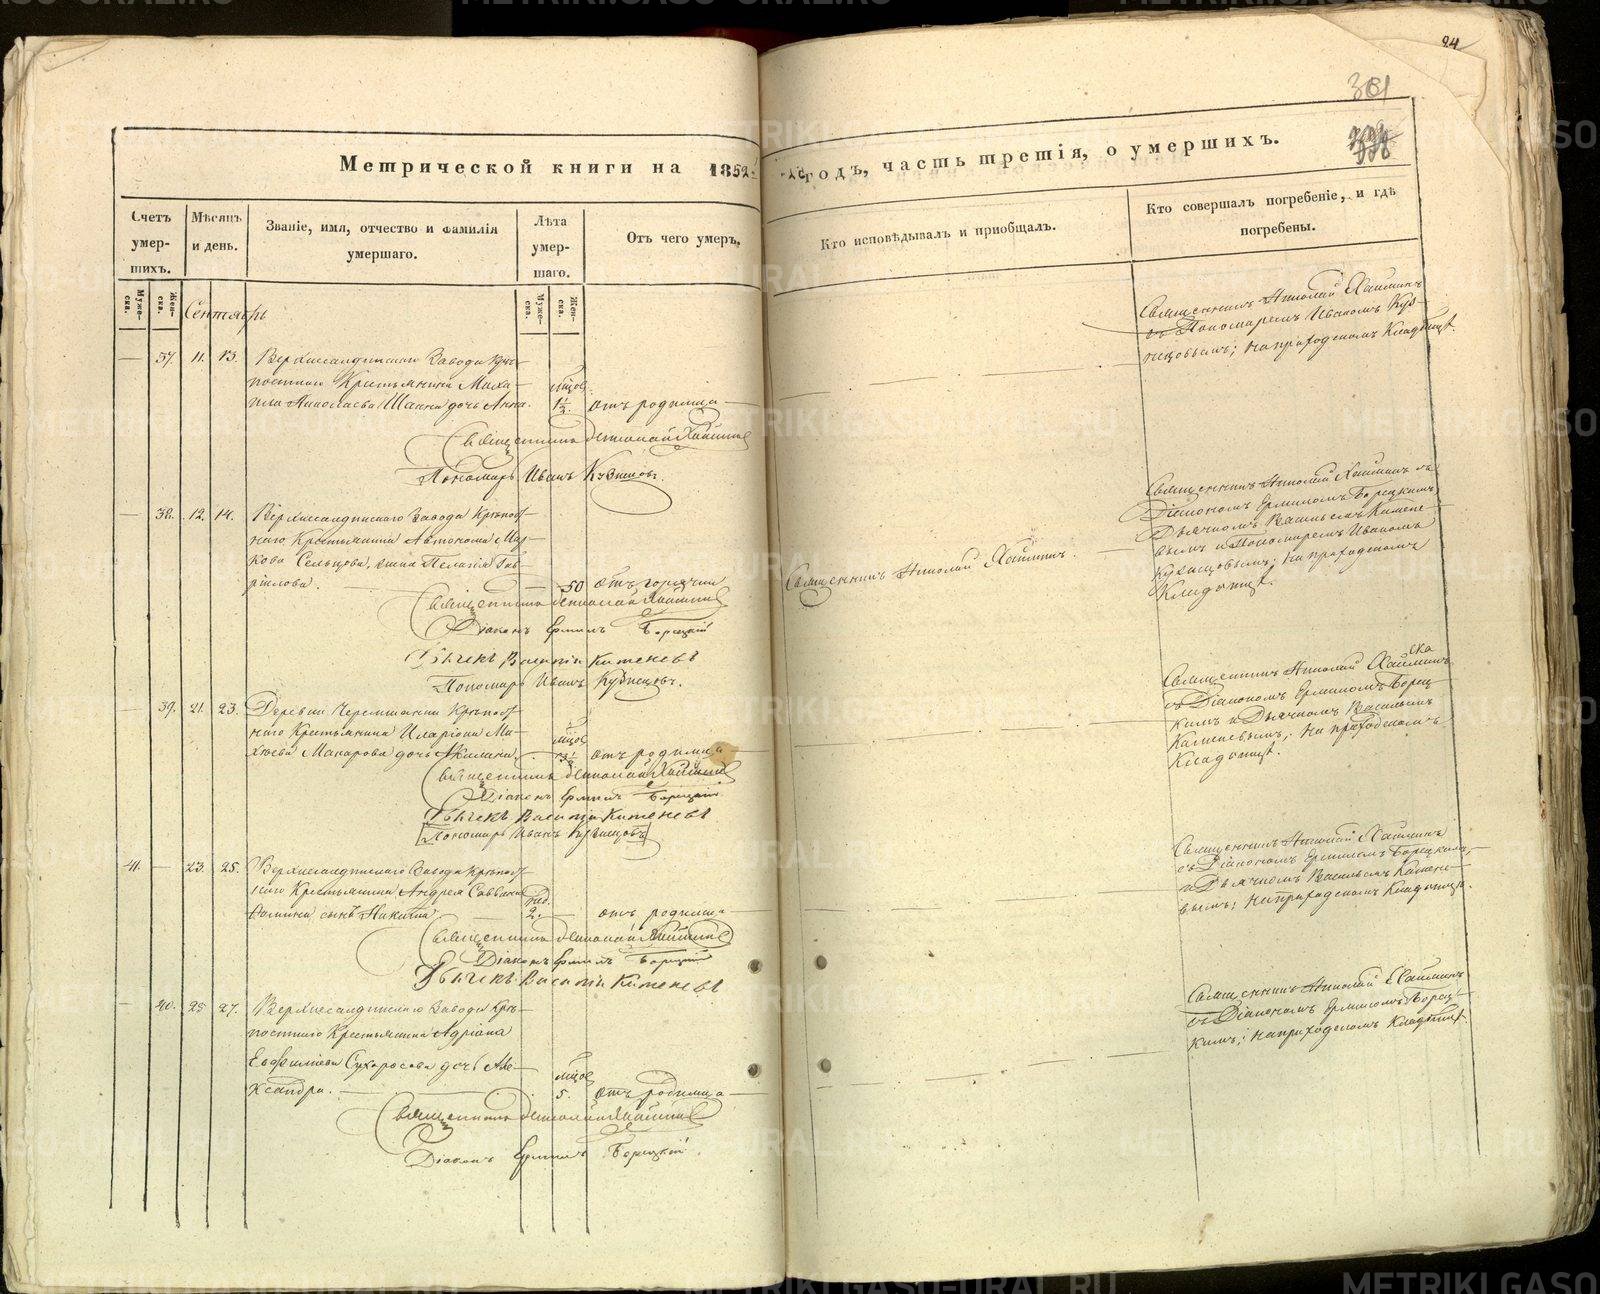 94
301
338
Метрической книги на 1852-й годъ, часть третія, о умершихъ.
Счетъ умер-шихъ.
Мѣсяцъ и день.
Званіе, имя, отчество и фамилія умершаго.
Лѣта умер-шаго.
Отъ чего умеръ.
Кто исповѣдывалъ и пріобщалъ.
Кто совершалъ погребеніе, и гдѣ погребены.
Муже-ска.
Жен-ска.
Муже-ска.
Жен-ска.
Сентябрь
37 11. 13. Верхнесалдинскаго Завода Крѣ-
постнаго Крестьянина Миха-
ила Николаева Шанина дочь Анна.
мѣсяц.
1½. отъ родимца
Священникъ Николай Хаймин
Пономарь Иванъ Кузнецовъ.
Священникъ Николай Хайминъ
съ Пономаремъ Иваномъ Куз-
нецовымъ; на приходскомъ Кладбищѣ.
38. 12. 14. Верхнесалдинскаго Завода Крѣпост-
наго Крестьянина Автонома Мар-
кова Сельцова, жена Пелагія Гав-
рилова.
50 отъ горячки
Священникъ Николай Хаймин
Діаконъ Ермилъ Борецкій
Дьячекъ Василій Китеневъ
Пономарь Иванъ Кузнецовъ.
Священникъ Николай Хайминъ.
Священникъ Николай Хайминъ съ
Діакономъ Ермиломъ Борецкимъ
Дьячкомъ Васильемъ Китене-
вымъ и Пономаремъ Иваномъ
Кузнецовымъ; на приходскомъ
Кладбищѣ.
39. 21. 23. Деревни Черемшанки Крѣпост-
наго Крестьянина Иларіона Ми-
хѣева Макарова дочь Акилина.
мѣсяц.
3½ отъ родимца
Священникъ Николай Хаймин
Діаконъ Ермилъ Борецкій
Дьячекъ Василій Китеневъ
Пономарь Иванъ Кузнецовъ
Священникъ Николай Хайминъ
съ Діакономъ Ермиломъ Борец-
кимъ и Дьячкомъ Васильемъ
Китеневымъ; на приходскомъ
Кладбищѣ.
41. 23. 25. Верхнесалдинскаго Завода Крѣпост-
наго Крестьянина Андрея Саввина
сынъ Никита.
нед.
2. отъ родимца
Священникъ Николай Хаймин
Діаконъ Ермилъ Борецкій
Дьячекъ Василій Китеневъ
Священникъ Николай Хайминъ
съ Діакономъ Ермиломъ Борецкимъ
и Дьячкомъ Васильемъ Китене-
вымъ; на приходскомъ Кладбищѣ.
40. 25 27. Верхнесалдинскаго Завода Крѣ-
постнаго Крестьянина Адріана
Евфиміева Сухоросова дочь Але-
ксандра.
мѣсяц
5. отъ родимца
Священникъ Николай Хаймин
Діаконъ Ермилъ Борецкій
Священникъ Николай Хайминъ
съ Діакономъ Ермиломъ Борец-
кимъ; на приходскомъ Кладбищѣ.
METRIKI.GASO-URAL.RU